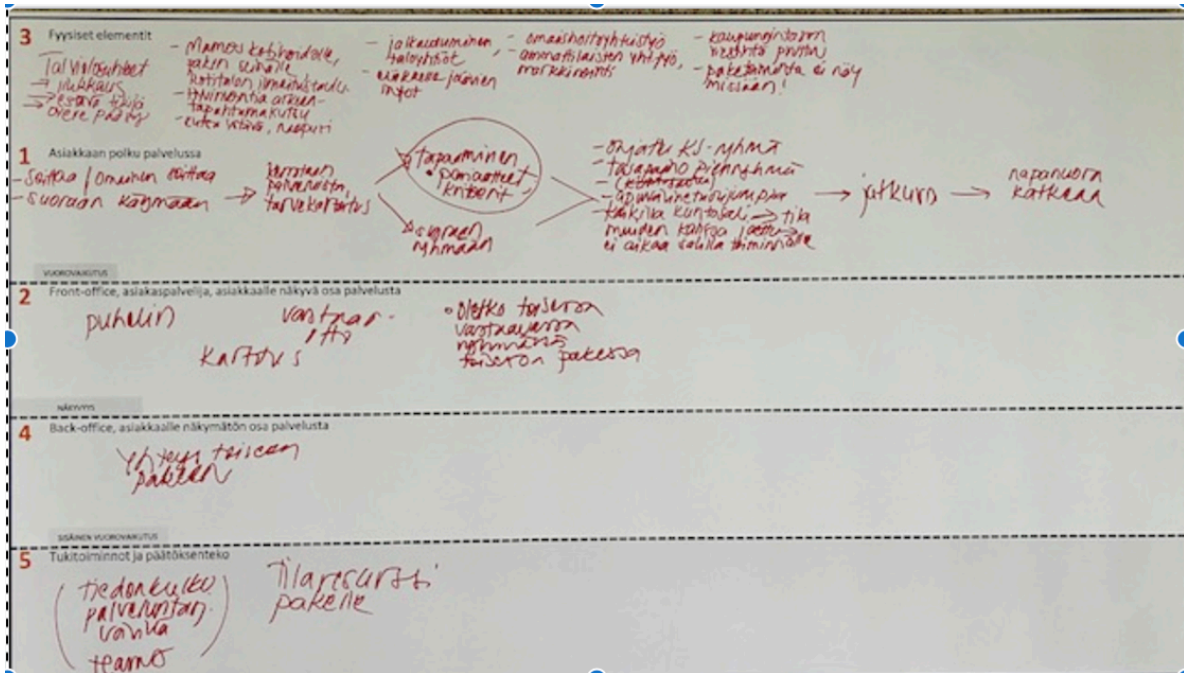 3 Fyysiset elementit
Talviolosuhteet
→ liukkaus
→ estävä tekijä
- Mainos kotihoidolle,
paken seinälle
kotitalon ilmoitustaulu
tapahtumakutsu
- kuten ystävä, naapuri
- jalkautuminen
taloyhtiöt
- eläkkeelle jäävien
infot
- omaishoitoyhteistyö
- ammattilaisten yht.työ,
markkinointi
- kaupunginталon
- paketoiminta ei näy
missään!
1 Asiakkaan polku palvelussa
- Soittaa / omainen soittaa
- suoraan käymään
kerrotaan
palveluista,
tarvekartoitus
tapaaminen
kriteerit
suoraan
ryhmään
- ohjattu KS-ryhmä
- tasapaino pienryhmä
- kaikilla kuntosali → tila
muiden kanssa jaettu →
ei aikaa salilla toiminnalle
→ jatkuu →
napanuora
katkeaa
VUOROVAIKUTUS
2 Front-office, asiakaspalvelija, asiakkaalle näkyvä osa palvelusta
puhelin
vastaan-
otto
kartoitus
• Oletko toisessa
vastaavassa
ryhmässä
toisessa pakessa
NÄKYVYYS
4 Back-office, asiakkaalle näkymätön osa palvelusta
yhteys toiseen
pakeen
SISÄINEN VUOROVAIKUTUS
5 Tukitoiminnot ja päätöksenteko
tiedonkulku
palveluntar.
välillä
teams
Tilaresurssi
pakelle